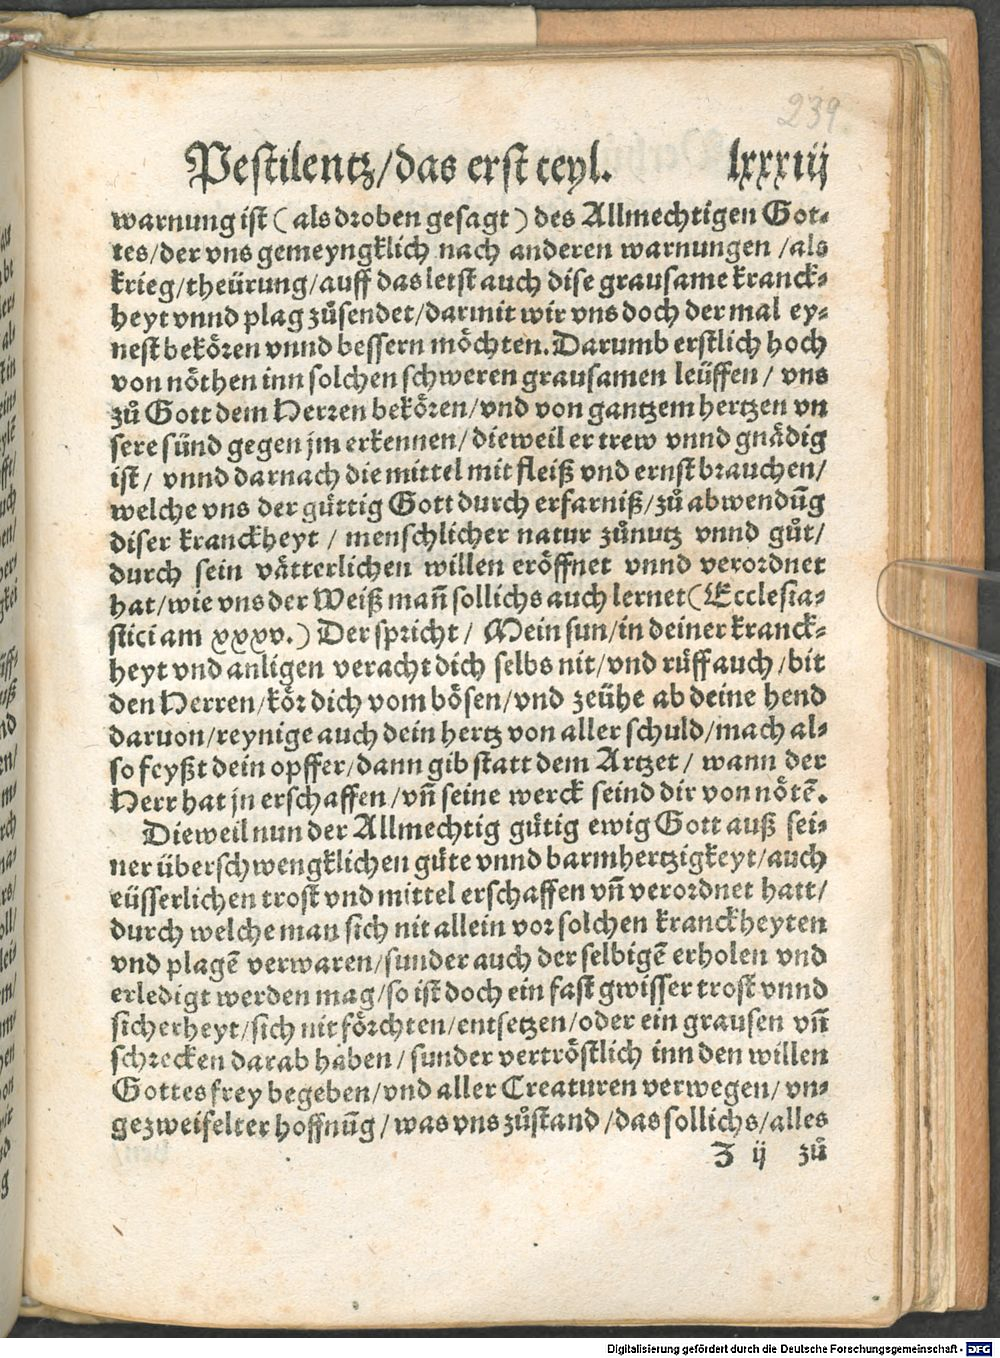 239.
Pestilentz/das erst teyl. lxxxiij
warnung ist (als droben gesagt) des Allmechtigen Got-
tes/der vns gemeyngklich nach anderen warnungen /als
krieg/theürung/auff das letst auch dise grausame kranck-
heyt vnnd plag zůsendet/darmit wir vns doch der mal ey-
nest bekören vnnd bessern möchten. Darumb erstlich hoch
von nöthen inn solchen schweren grausamen leüffen / vns
zů Gott dem Herren bekören/vnd von gantzem hertzen vn
sere sünd gegen jm erkennen/dieweil er trew vnnd gnädig
ist/ vnnd darnach die mittel mit fleiß vnd ernst brauchen/
welche vns der güttig Gott durch erfarniß/zů abwendūg
diser kranckheyt / menschlicher natur zůnutz vnnd gůt/
durch sein vätterlichen willen eröffnet vnnd verordnet
hat/wie vns der Weiß mañ sollichs auch lernet(Ecclesia-
stici am xxxv.) Der spricht / Mein sun/in deiner kranck-
heyt vnd anligen veracht dich selbs nit/vnd rüff auch /bit
den Herren/kör dich vom bösen/vnd zeühe ab deine hend
daruon/reynige auch dein hertz von aller schuld/mach al-
so feyßt dein opffer/dann gib statt dem Artzet/ wann der
Herr hat jn erschaffen/vñ seine werck seind dir von nötē.
Dieweil nun der Allmechtig gütig ewig Gott auß sei-
ner überschwengklichen güte vnnd barmhertzigkeyt/auch
eüsserlichen trost vnd mittel erschaffen vñ verordnet hatt/
durch welche man sich nit allein vor solchen kranckheyten
vnd plagē verwaren/sunder auch der selbigē erholen vnd
erledigt werden mag/so ist doch ein fast gwisser trost vnnd
sicherheyt/sich nit förchten/entsetzen/oder ein grausen vñ
schrecken darab haben/ sunder vertröstlich inn den willen
Gottes frey begeben/vnd aller Creaturen verwegen/ vn-
gezweifelter hoffnūg/was vns zůstand/das sollichs/alles
Z ij zů
Digitalisierung gefördert durch die Deutsche Forschungsgemeinschaft - DFG